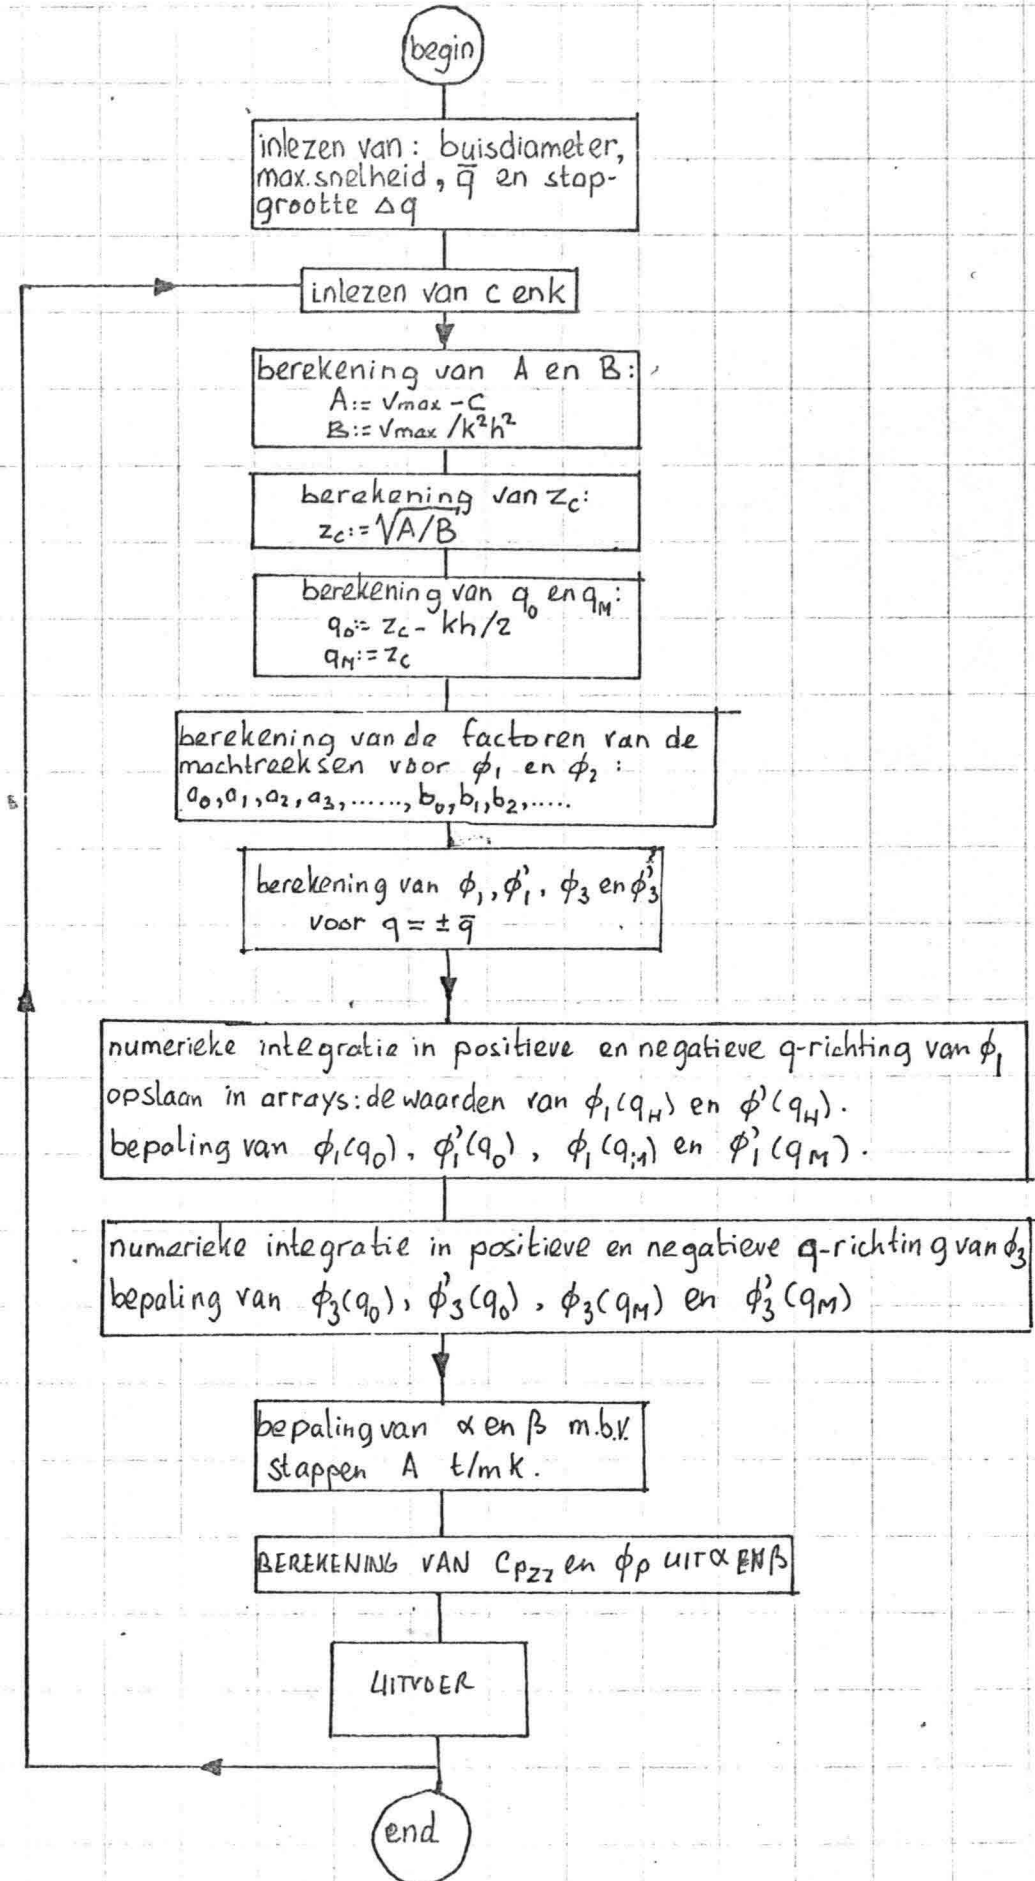 begin
inlezen van: buisdiameter,
max. snelheid, q̄ en stap-
grootte Δq
inlezen van c en k
berekening van A en B:
A:= Vmax - C
B:= Vmax /k²h²
berekening van z_c:
z_c:= √A/B
berekening van q₀ en q_M:
q₀:= z_c - kh/2
q_M:= z_c
berekening van de factoren van de
machtreeksen voor ϕ₁ en ϕ₂:
a₀, a₁, a₂, a₃, ......, b₀, b₁, b₂, .....
berekening van ϕ₁, ϕ₁', ϕ₃ en ϕ₃'
voor q = ± q̄
numerieke integratie in positieve en negatieve q-richting van ϕ₁
opslaan in arrays: de waarden van ϕ₁(q_H) en ϕ'(q_H).
bepaling van ϕ₁(q₀), ϕ₁'(q₀), ϕ₁(q_M) en ϕ₁'(q_M).
numerieke integratie in positieve en negatieve q-richting van ϕ₃
bepaling van ϕ₃(q₀), ϕ₃'(q₀), ϕ₃(q_M) en ϕ₃'(q_M)
bepaling van α en β m.b.v.
stappen A t/m k.
BEREKENING VAN C_pzz en ϕ_p UIT α EN β
UITVOER
end